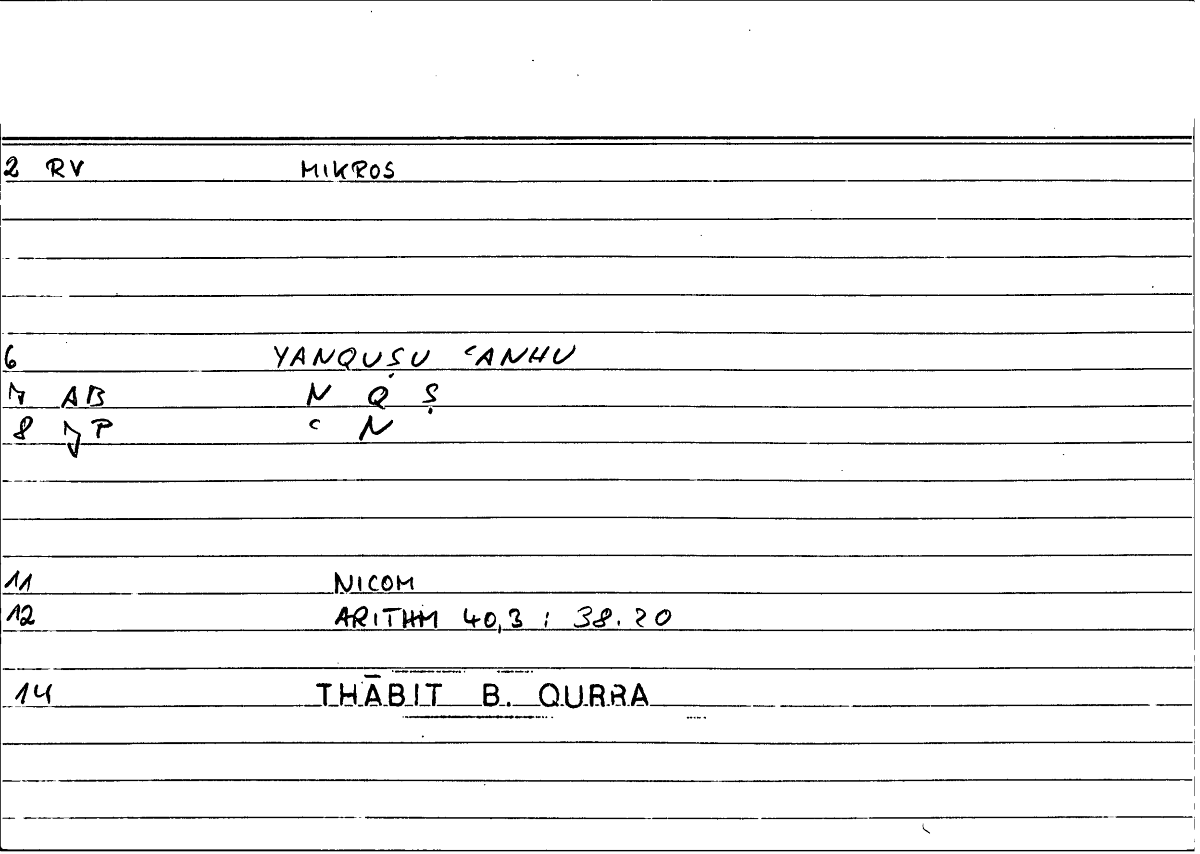 2 RV MIKROS
6 YANQUṢU ʿANHU
7 AB N Q Ṣ
8 JP ʿ N
11 NICOM
12 ARITHM 40,3 : 38.20
14 THĀBIT B. QURRA